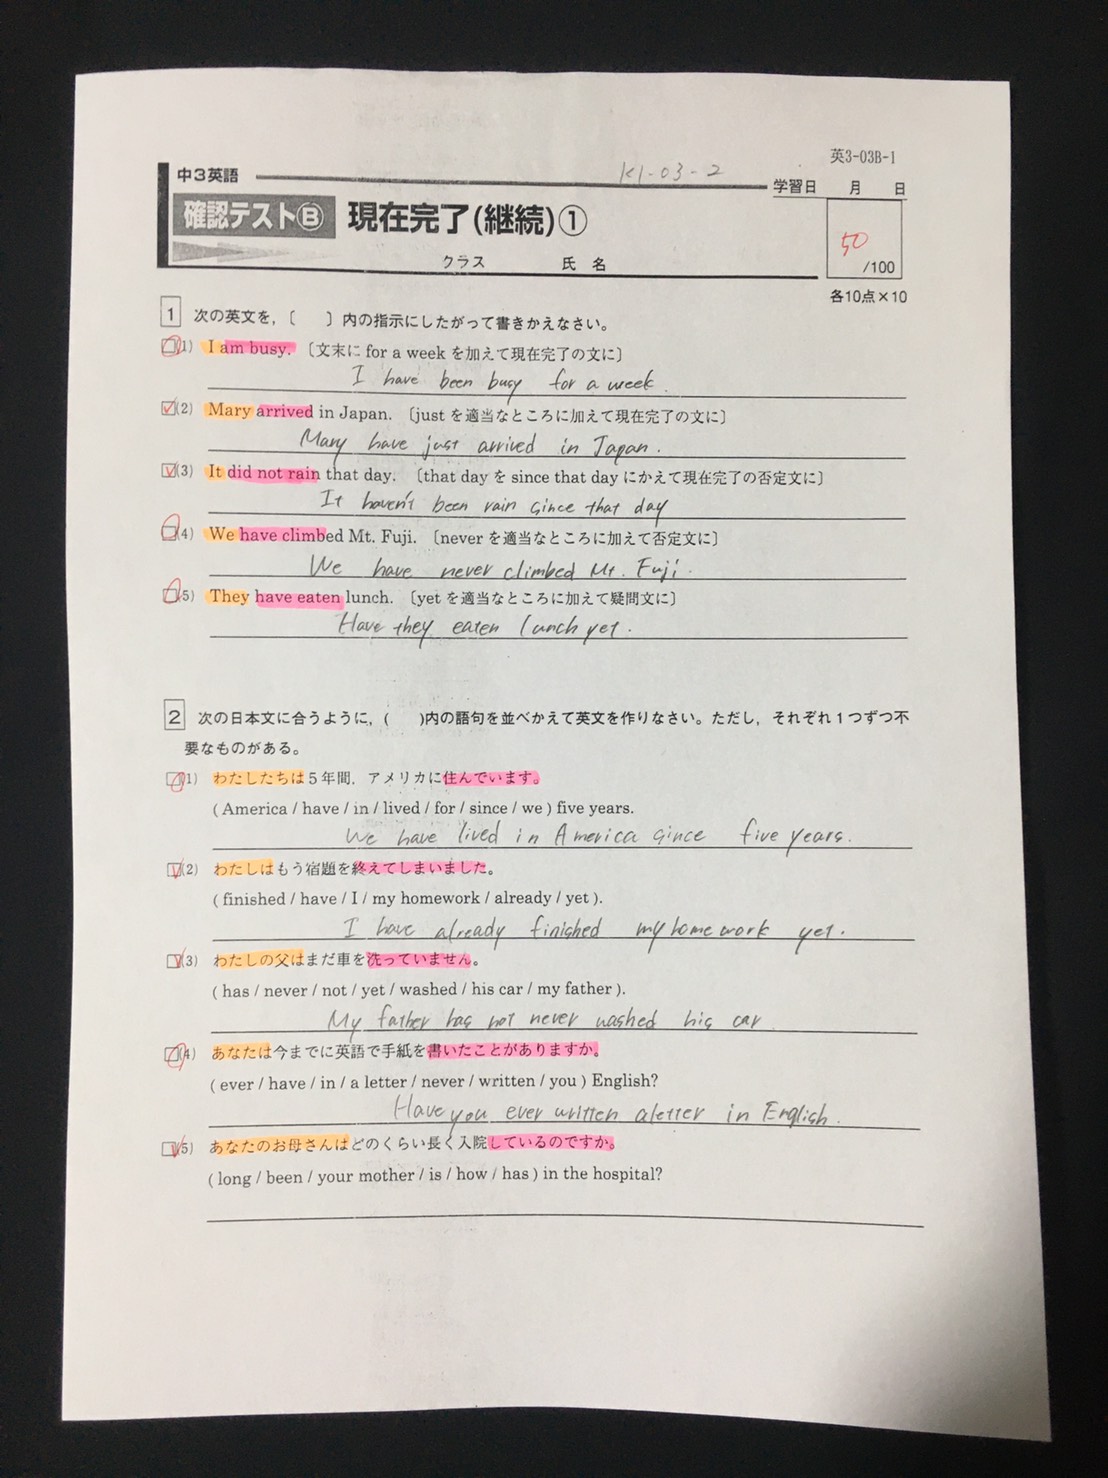 英3-03B-1
中3英語
K1-03-2
学習日 月 日
確認テストⒷ 現在完了(継続)①
50
/100
クラス 氏 名
各10点×10
1 次の英文を,〔 〕内の指示にしたがって書きかえなさい。
(1) I am busy. 〔文末に for a week を加えて現在完了の文に〕
I have been busy for a week.
(2) Mary arrived in Japan. 〔just を適当なところに加えて現在完了の文に〕
Mary have just arrived in Japan.
(3) It did not rain that day. 〔that day を since that day にかえて現在完了の否定文に〕
It haven't been rain since that day
(4) We have climbed Mt. Fuji. 〔never を適当なところに加えて否定文に〕
We have never climbed Mt. Fuji.
(5) They have eaten lunch. 〔yet を適当なところに加えて疑問文に〕
Have they eaten lunch yet.
2 次の日本文に合うように,( )内の語句を並べかえて英文を作りなさい。ただし,それぞれ1つずつ不
要なものがある。
(1) わたしたちは5年間,アメリカに住んでいます。
( America / have / in / lived / for / since / we ) five years.
We have lived in America since five years.
(2) わたしはもう宿題を終えてしまいました。
( finished / have / I / my homework / already / yet ).
I have already finished my homework yet.
(3) わたしの父はまだ車を洗っていません。
( has / never / not / yet / washed / his car / my father ).
My father has not never washed his car
(4) あなたは今までに英語で手紙を書いたことがありますか。
( ever / have / in / a letter / never / written / you ) English?
Have you ever written a letter in English.
(5) あなたのお母さんはどのくらい長く入院しているのですか。
( long / been / your mother / is / how / has ) in the hospital?